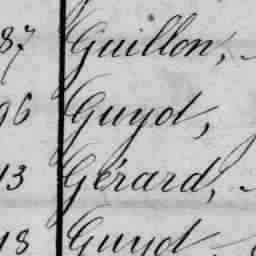 87 Guillon,
96 Guyot,
13 Gérard,
18 Guyot